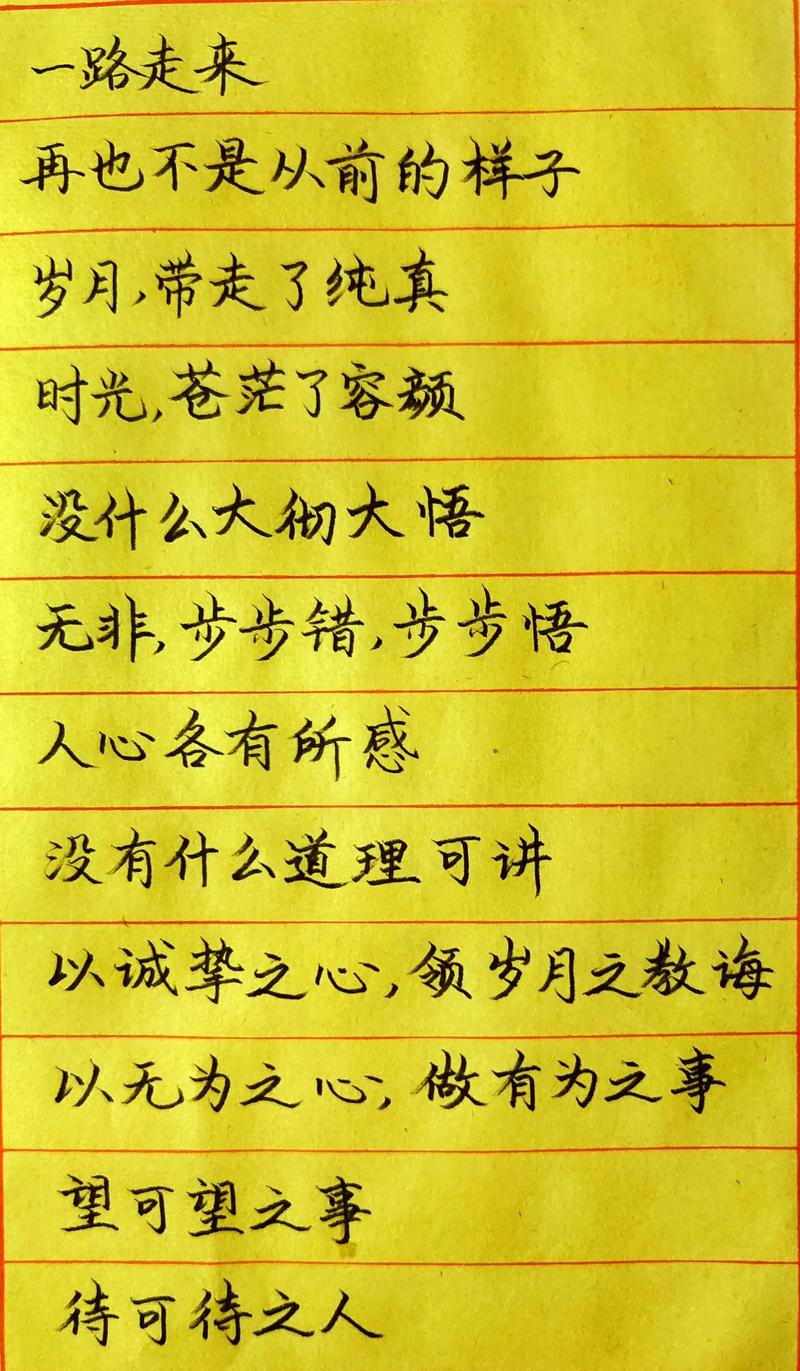 一路走来
再也不是从前的样子
岁月,带走了纯真
时光,苍茫了容颜
没什么大彻大悟
无非,步步错,步步悟
人心各有所感
没有什么道理可讲
以诚挚之心,领岁月之教诲
以无为之心,做有为之事
望可望之事
待可待之人